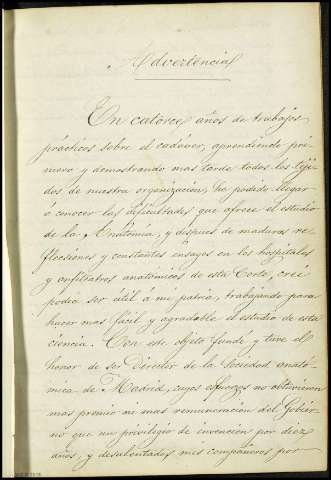 Advertencia
En catorce años de trabajos
prácticos sobre el cadáver, aprendiendo pri-
mero y demostrando mas tarde todos los teji-
dos de nuestra organizacion, he podido llegar
á conocer las dificultades que ofrece el estudio
de la Anatomía, y despues de maduras re-
flecsiones y constantes ensayos en los hospitales
y anfiteatros anatómicos de esta Corte, creí
podia ser útil á mi patria, trabajando para
hacer mas fácil y agradable el estudio de esta
ciencia. Con este objeto fundé y tuve el
honor de ser Director de la Sociedad anató-
mica de Madrid, cuyos esfuerzos no obtuvieron
mas premio ni mas remuneracion del Gobier-
no que un privilegio de invencion por diez
años, y desalentados mis compañeros por